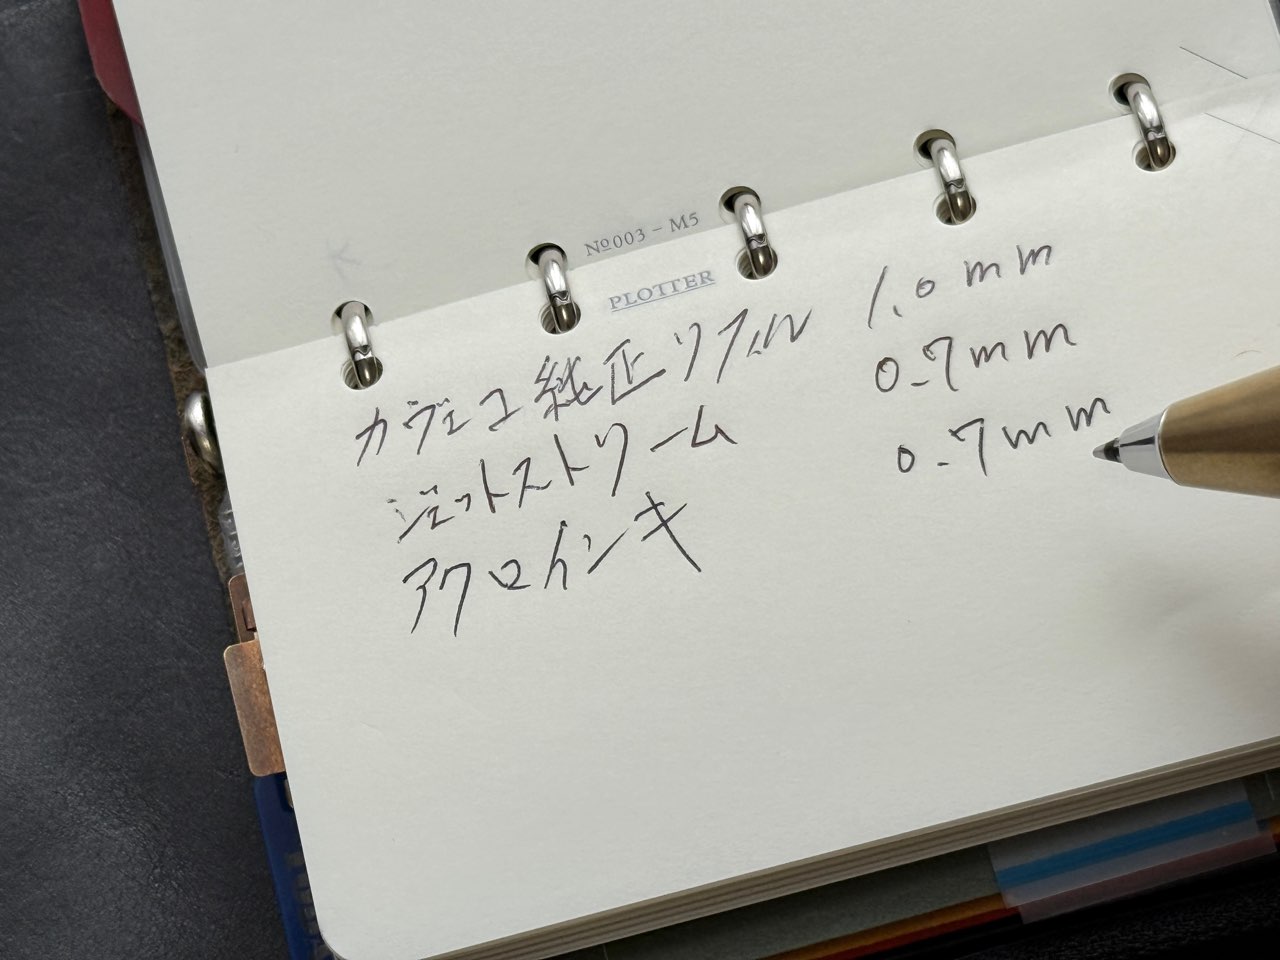 №003 - M5
PLOTTER
カヴェコ純正リフィル 1.0mm
ジェットストリーム 0.7mm
アクロインキ 0.7mm